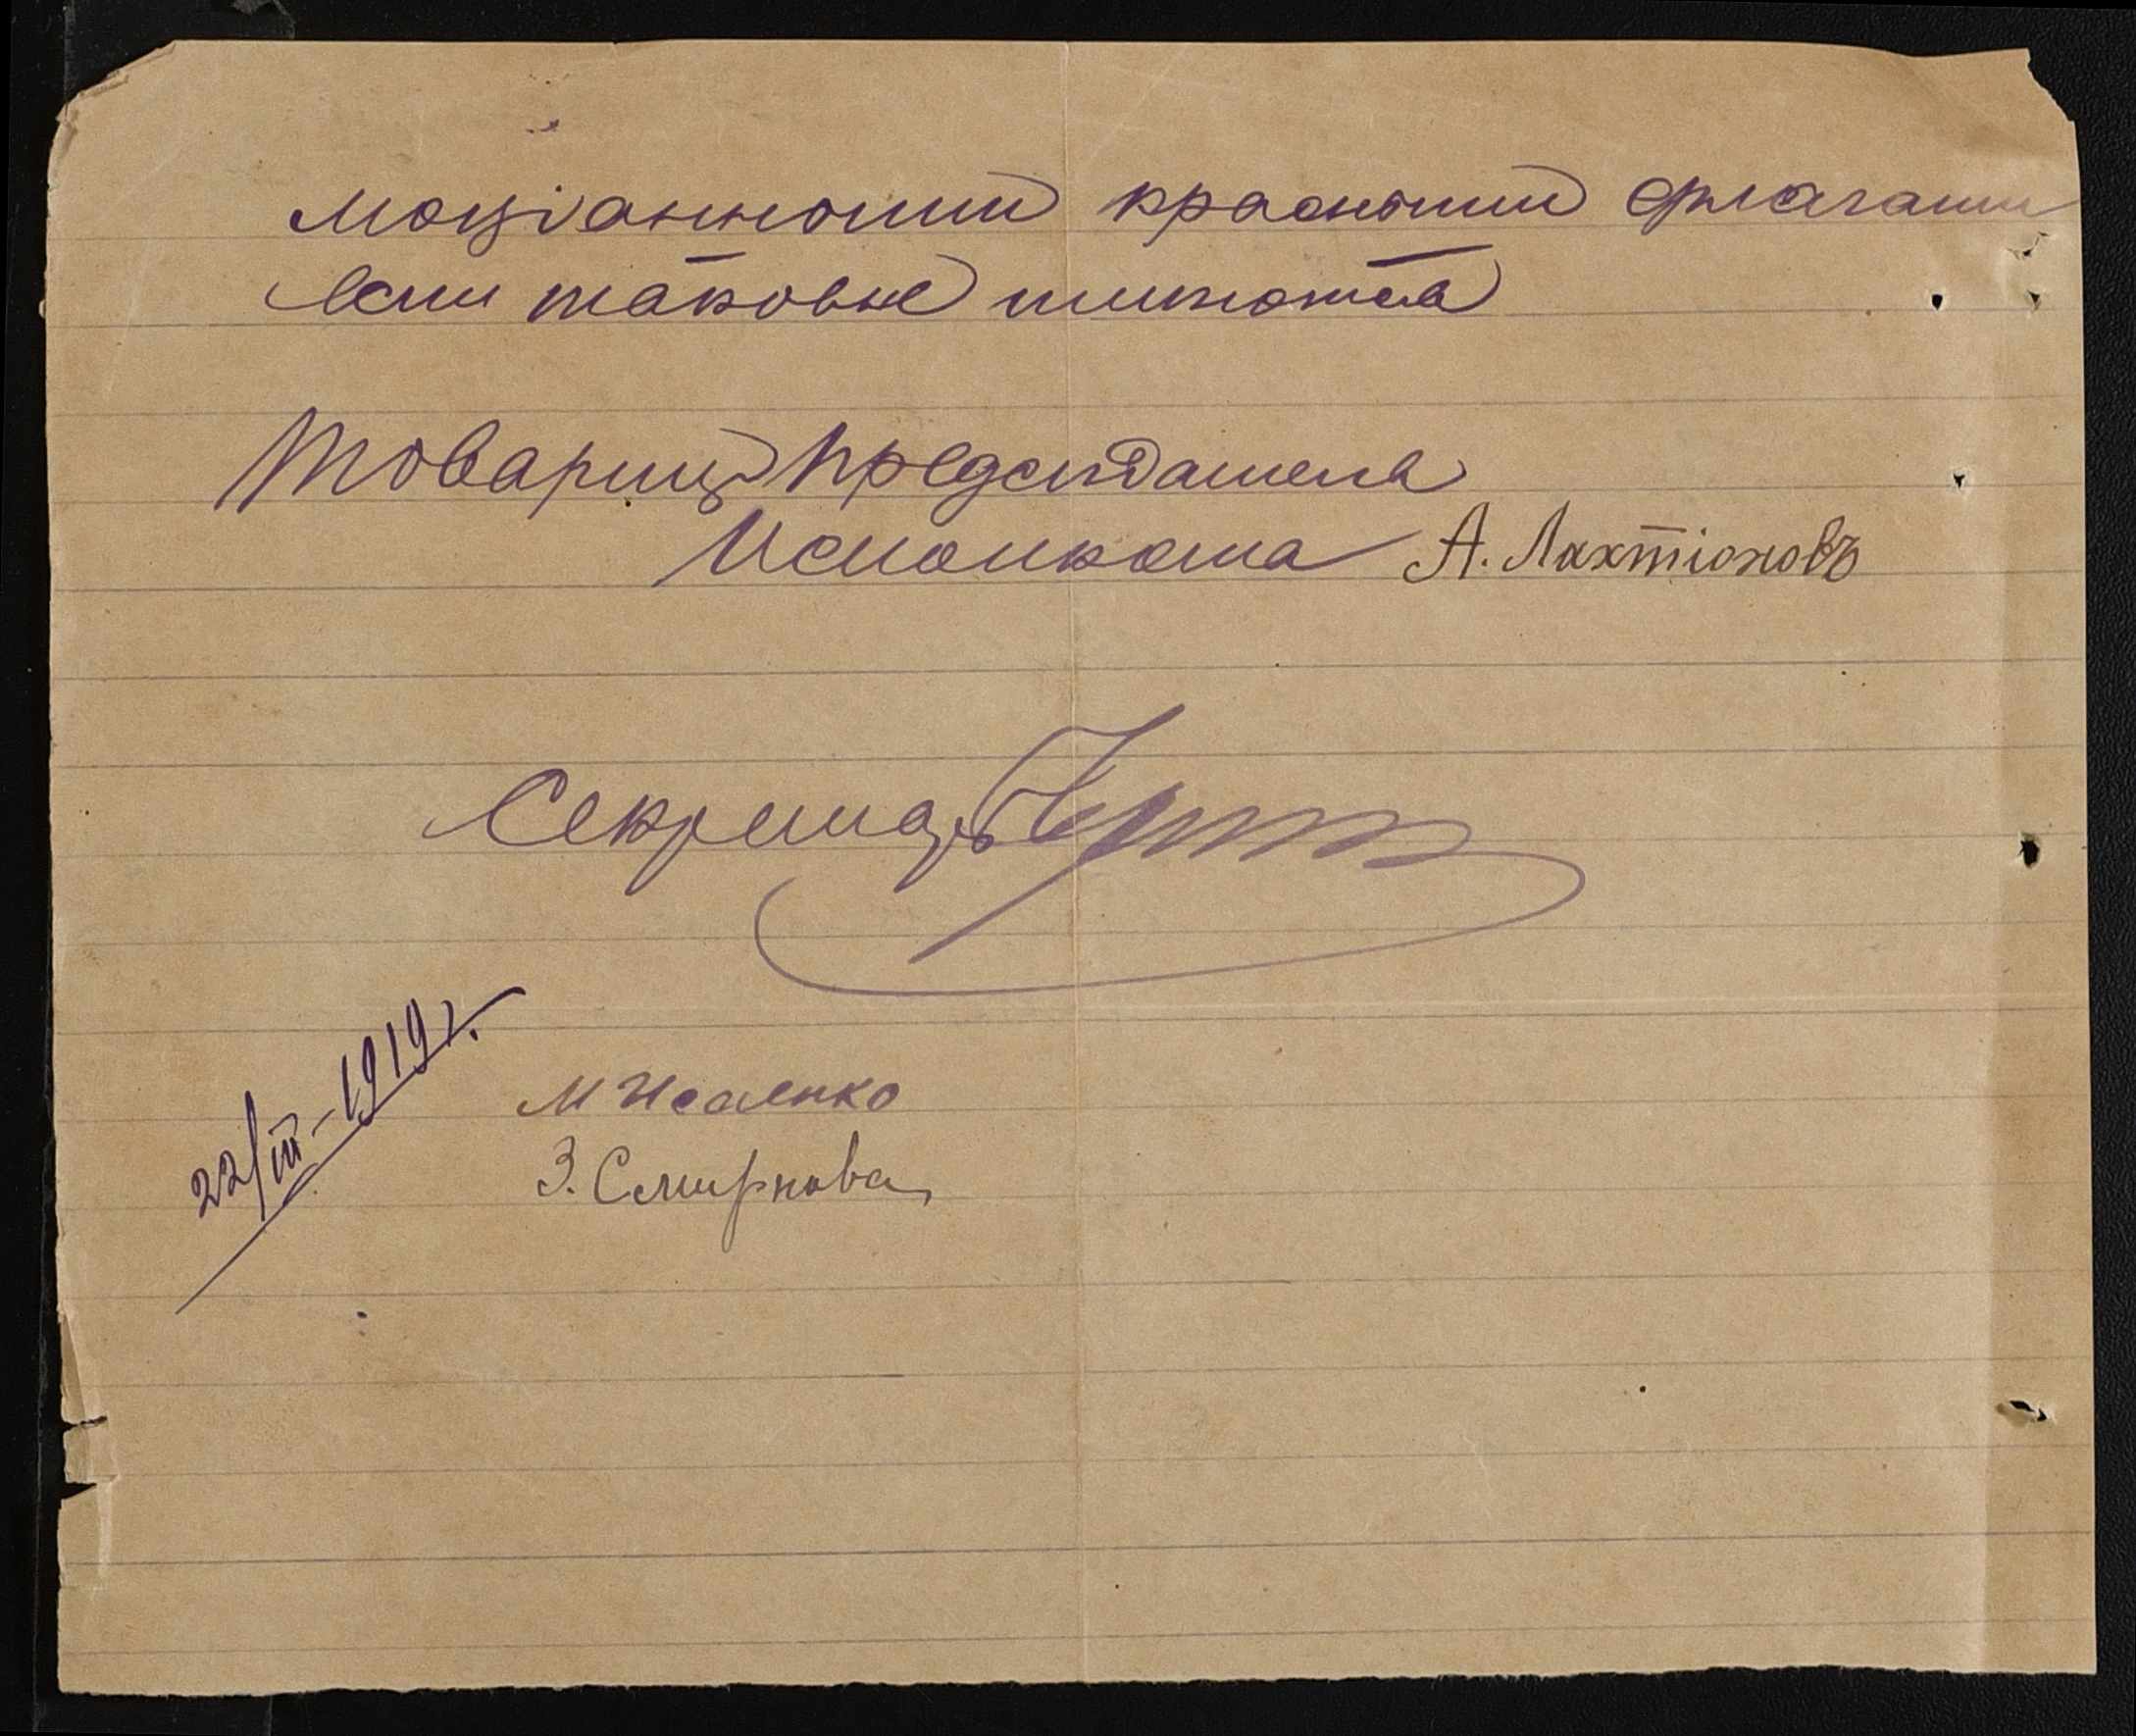 люціонными красными флагами
если таковые имеются
Товарищ Председателя
Исполкома А. Лахтіоновъ
Секретарь
22/III-1919 г.
М Исаенко
З. Смирнова